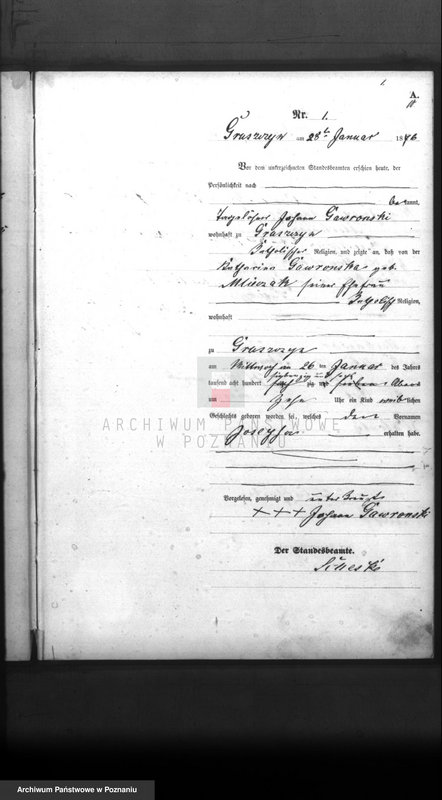 1.
A.
Nr. 1.
am 28t Januar 1876
Vor dem unterzeichneten Standesbeamten erschien heute, der
Persönlichkeit nach
bekannt,
Tagelöhner Johann Gawronski
wohnhaft zu
katholischer Religion, und zeigte an, daß von der
Katharina Gawronska geb.
seiner Ehefrau
katholisch Religion,
wohnhaft
zu
am Mittwoch am 26 ten Januar des Jahres
siebenzig und sechs
tausend acht hundert zig und Abends
um Zehn Uhr ein Kind weiblichen
Geschlechts geboren worden sei, welches den Vornamen
Josepha
erhalten habe.
Vorgelesen, genehmigt und
+++ Johann Gawronski
Der Standesbeamte.
ARCHIWUM PAŃSTWOWE
W POZNANIU
Archiwum Państwowe w Poznaniu